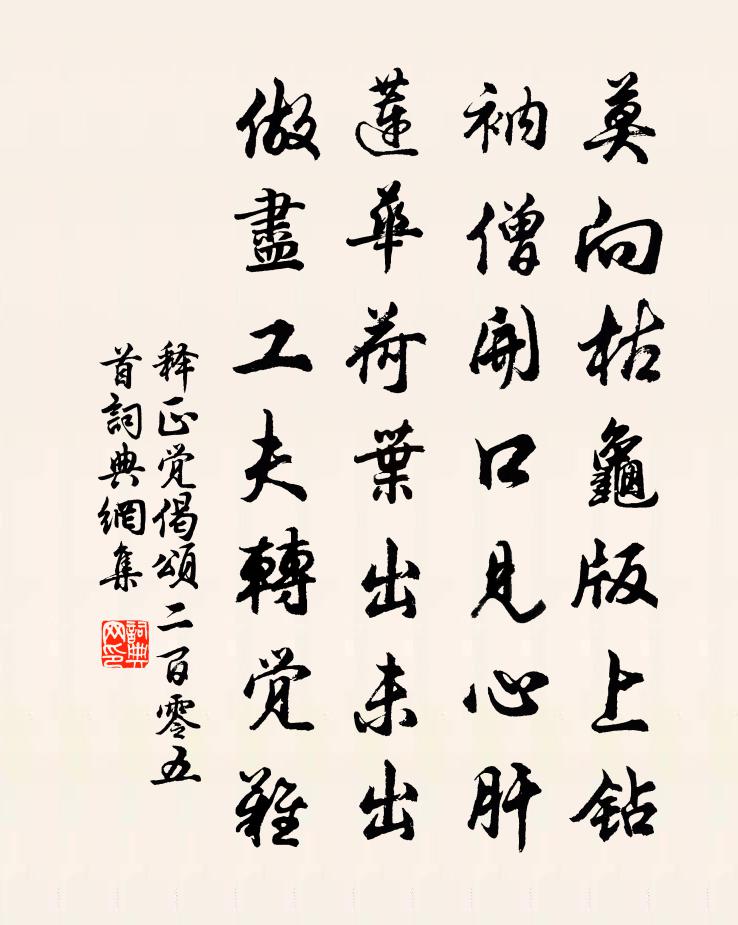 莫向枯龜版上钻
衲僧開口見心肝
蓮華荷葉出未出
做盡工夫轉覺難
释正觉偈頌二百零五
首詞典網集
詞典
网印